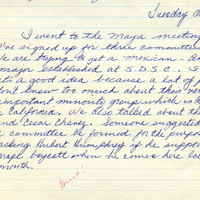 Tuesday O
I went to the Maya meeting
We signed up for three committees
We are trying to get a Mexican. Am
major established at S.D.S.C. I
it's a good idea because a lot of p
don't know too much about this very
important minority group which is in
California. We also talked about the
and Cesar Chavez. Someone suggested
a committee be formed for the purpose
asking Hubert Humphrey if he supports
grape boycott when he comes here late
month.